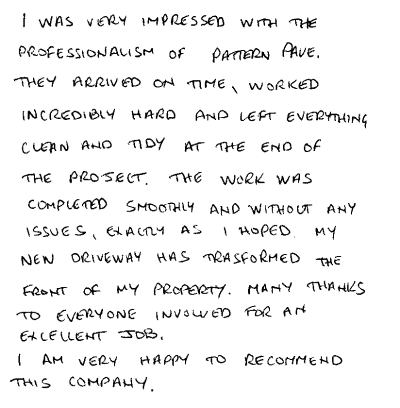 I WAS VERY IMPRESSED WITH THE
PROFESSIONALISM OF PATTERN PAVE.
THEY ARRIVED ON TIME, WORKED
INCREDIBLY HARD AND LEFT EVERYTHING
CLEAN AND TIDY AT THE END OF
THE PROJECT. THE WORK WAS
COMPLETED SMOOTHLY AND WITHOUT ANY
ISSUES, EXACTLY AS I HOPED. MY
NEW DRIVEWAY HAS TRASFORMED THE
FRONT OF MY PROPERTY. MANY THANKS
TO EVERYONE INVOLVED FOR AN
EXCELLENT JOB.
I AM VERY HAPPY TO RECOMMEND
THIS COMPANY.